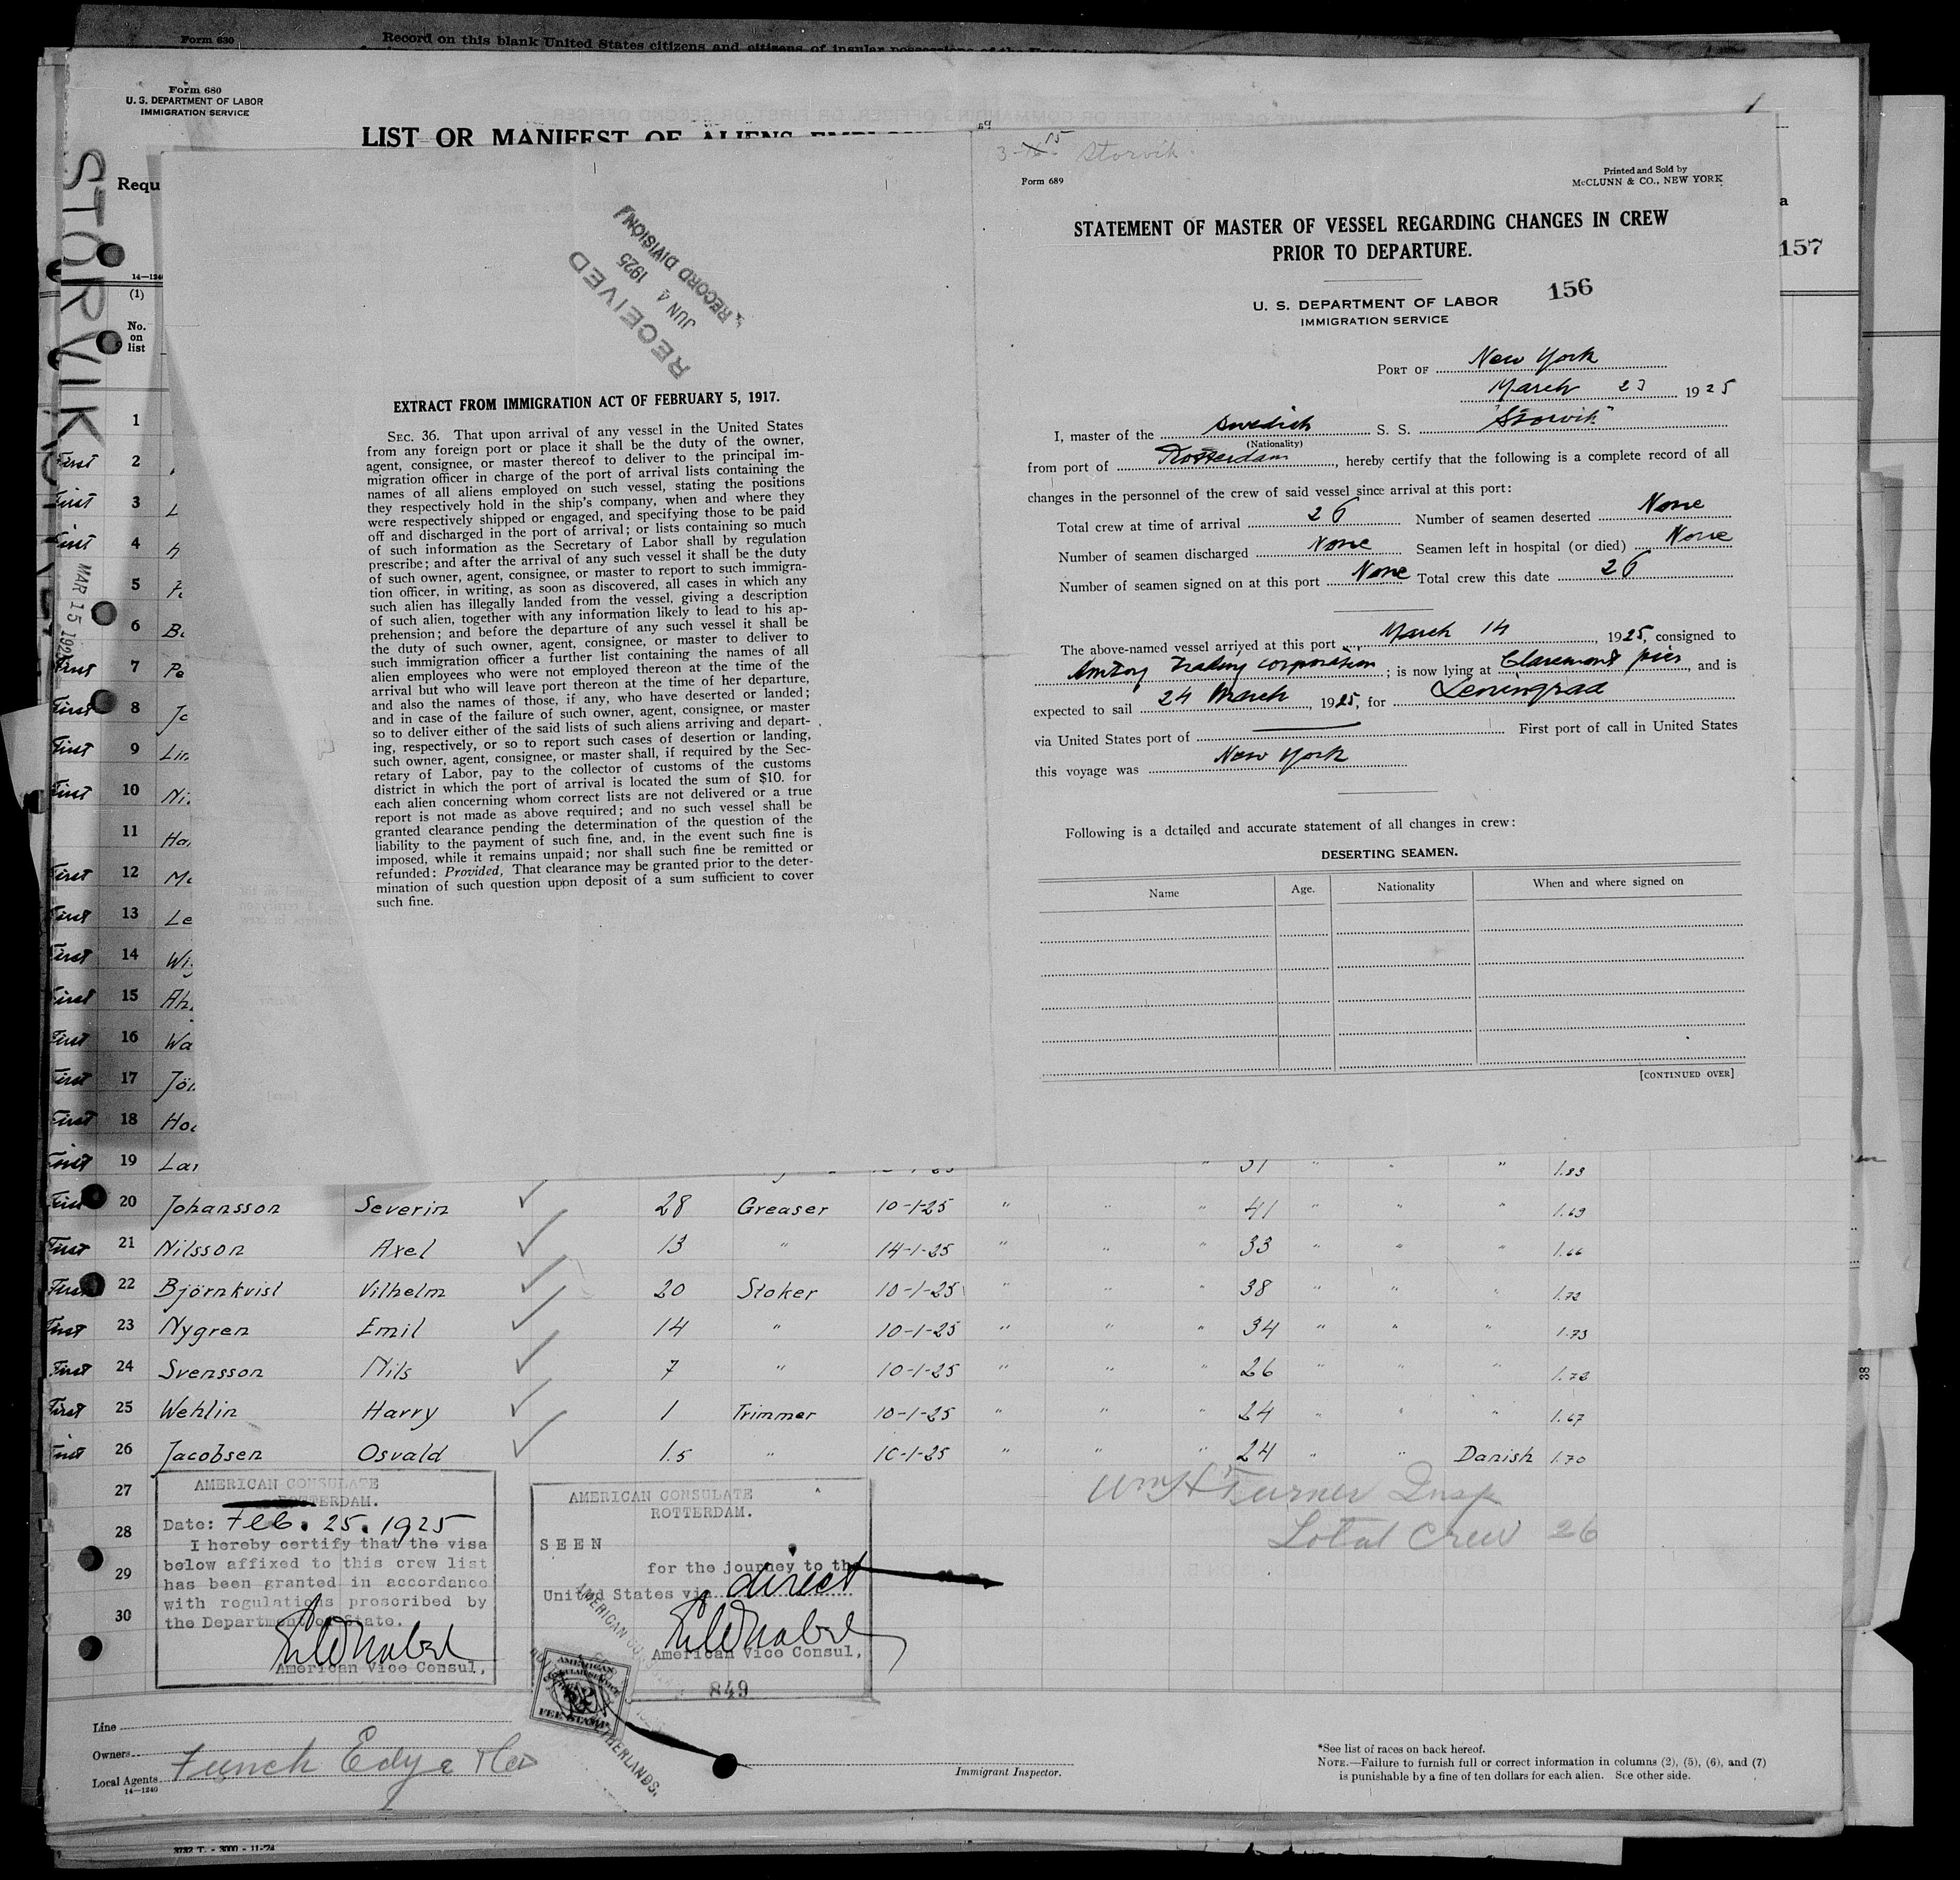 Form 630
Record on this blank United States citizens and citizens of insular possessions of the United
Form 680
U. S. DEPARTMENT OF LABOR
IMMIGRATION SERVICE
LIST OR MANIFEST OF ALIENS
Requ
STORVIK
MAR 15 192
(1)
No.
on
list
157
RECEIVED
JUN 4 1925
RECORD DIVISION
EXTRACT FROM IMMIGRATION ACT OF FEBRUARY 5, 1917.
SEC. 36. That upon arrival of any vessel in the United States
from any foreign port or place it shall be the duty of the owner,
agent, consignee, or master thereof to deliver to the principal im-
migration officer in charge of the port of arrival lists containing the
names of all aliens employed on such vessel, stating the positions
they respectively hold in the ship's company, when and where they
were respectively shipped or engaged, and specifying those to be paid
off and discharged in the port of arrival; or lists containing so much
of such information as the Secretary of Labor shall by regulation
prescribe; and after the arrival of any such vessel it shall be the duty
of such owner, agent, consignee, or master to report to such immigra-
tion officer, in writing, as soon as discovered, all cases in which any
such alien has illegally landed from the vessel, giving a description
of such alien, together with any information likely to lead to his ap-
prehension; and before the departure of any such vessel it shall be
the duty of such owner, agent, consignee, or master to deliver to
such immigration officer a further list containing the names of all
alien employees who were not employed thereon at the time of the
arrival but who will leave port thereon at the time of her departure,
and also the names of those, if any, who have deserted or landed;
and in case of the failure of such owner, agent, consignee, or master
so to deliver either of the said lists of such aliens arriving and depart-
ing, respectively, or so to report such cases of desertion or landing,
such owner, agent, consignee, or master shall, if required by the Sec-
retary of Labor, pay to the collector of customs of the customs
district in which the port of arrival is located the sum of $10. for
each alien concerning whom correct lists are not delivered or a true
report is not made as above required; and no such vessel shall be
granted clearance pending the determination of the question of the
liability to the payment of such fine, and, in the event such fine is
imposed, while it remains unpaid; nor shall such fine be remitted or
refunded: Provided, That clearance may be granted prior to the deter-
mination of such question upon deposit of a sum sufficient to cover
such fine.
3-15 Storvik
Form 689
Printed and Sold by
McCLUNN & CO., NEW YORK
STATEMENT OF MASTER OF VESSEL REGARDING CHANGES IN CREW
PRIOR TO DEPARTURE.
156
U. S. DEPARTMENT OF LABOR
IMMIGRATION SERVICE
PORT OF New York
March 23 1925
I, master of the Swedish S. S. "Storvik"
(Nationality)
from port of Rotterdam, hereby certify that the following is a complete record of all
changes in the personnel of the crew of said vessel since arrival at this port:
Total crew at time of arrival 26 Number of seamen deserted None
Number of seamen discharged None Seamen left in hospital (or died) None
Number of seamen signed on at this port None Total crew this date 26
The above-named vessel arrived at this port March 14, 1925, consigned to
Amtorg Trading corporation; is now lying at Claremont pier, and is
expected to sail 24 March, 1925, for Leningrad
via United States port of First port of call in United States
this voyage was New York
Following is a detailed and accurate statement of all changes in crew:
DESERTING SEAMEN.
Name Age. Nationality When and where signed on
[CONTINUED OVER]
1
First 2
First 3
First 4
5
6
First 7
First 8
First 9
First 10
11
First 12
First 13
First 14
First 15
First 16
First 17
First 18
First 19 " 31 " " " 1.83
First 20 Johansson Severin 28 Greaser 10-1-25 " " " 41 " " " 1.69
First 21 Nilsson Axel 13 " 14-1-25 " " " 33 " " " 1.66
First 22 Björnkvist Vilhelm 20 Stoker 10-1-25 " " " 38 " " " 1.72
First 23 Nygren Emil 14 " 10-1-25 " " " 34 " " " 1.73
First 24 Svensson Nils 7 " 10-1-25 " " " 26 " " " 1.72
First 25 Wehlin Harry 1 Trimmer 10-1-25 " " " 24 " " " 1.67
First 26 Jacobsen Osvald 1.5 " 10-1-25 " " " 24 " " Danish 1.70
27
28
29
30
AMERICAN CONSULATE
ROTTERDAM.
Date: Feb. 25. 1925
I hereby certify that the visa
below affixed to this crew list
has been granted in accordance
with regulations prescribed by
the Department of State.
American Vice Consul,
AMERICAN CONSULATE
ROTTERDAM.
SEEN
for the journey to the
United States via direct
American Vice Consul,
849
AMERICAN
CONSULAR SERVICE
FEE STAMP
NETHERLANDS.
Wm H Turner Insp
Total Crew 26
Line
Owners
Local Agents Funch Edye & Co
14—1240
Immigrant Inspector.
*See list of races on back hereof.
NOTE.—Failure to furnish full or correct information in columns (2), (5), (6), and (7)
is punishable by a fine of ten dollars for each alien. See other side.
3732 T. - 3000 - 11-'24